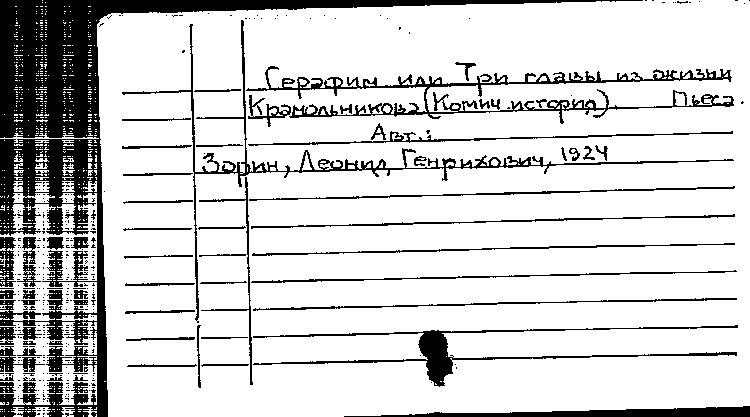 Серафим или Три главы из жизни
Крамольникова (Комич. история). Пьеса.
Авт.:
Зорин, Леонид Генрихович, 1924